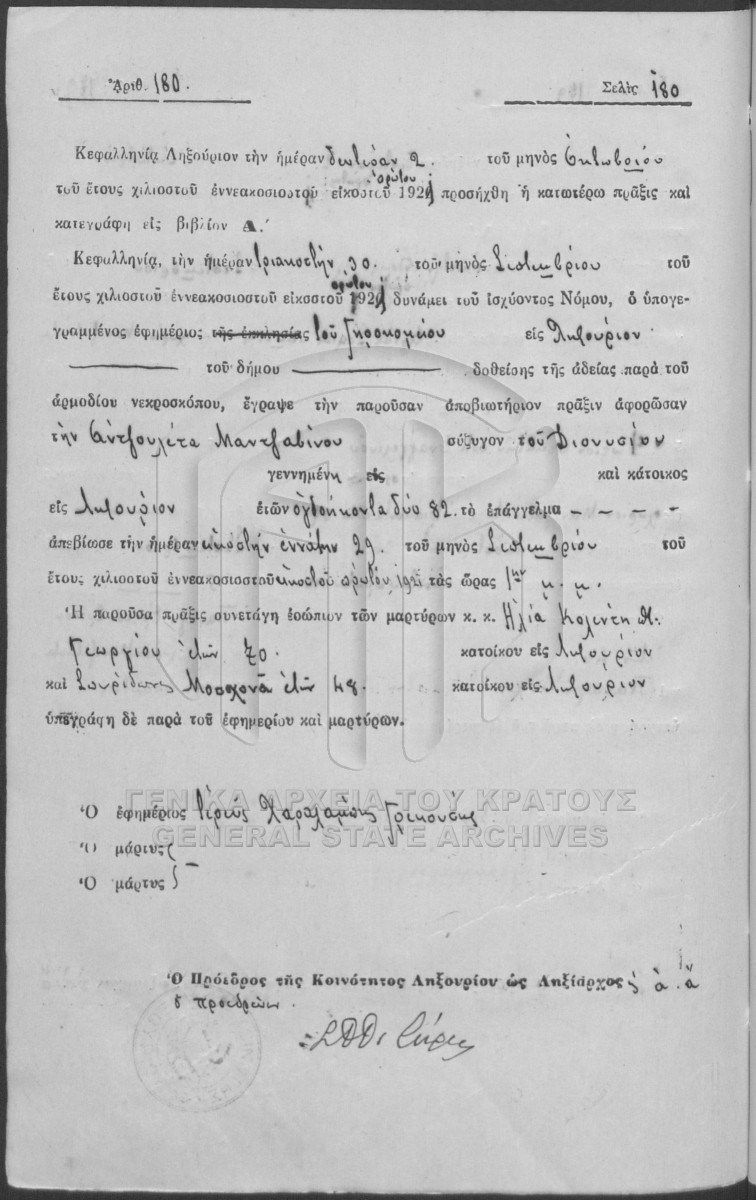 Ἀριθ. 180.
Σελὶς 180
Κεφαλληνία Ληξούριον τὴν ἡμέραν δευτέραν 2. τοῦ μηνὸς Ὀκτωβρίου
πρώτου
τοῦ ἔτους χιλιοστοῦ ἐννεακοσιοστοῦ εἰκοστοῦ 1921 προσήχθη ἡ κατωτέρω πρᾶξις καὶ
κατεγράφη εἰς βιβλίον Α.'
Κεφαλληνία, τὴν ἡμέραν τριακοστὴν 30. τοῦ μηνὸς Σεπτεμβρίου τοῦ
πρώτου
ἔτους χιλιοστοῦ ἐννεακοσιοστοῦ εἰκοστοῦ 1921 δυνάμει τοῦ ἰσχύοντος Νόμου, ὁ ὑπογε-
γραμμένος ἐφημέριος τῆς ἐκκλησίας τοῦ Γηροκομείου εἰς Ληξούριον
τοῦ δήμου δοθείσης τῆς ἀδείας παρὰ τοῦ
ἁρμοδίου νεκροσκόπου, ἔγραψε τὴν παροῦσαν ἀποβιωτήριον πρᾶξιν ἀφορῶσαν
τὴν Ἀντζουλέτα Μαντζαβίνου σύζυγον τοῦ Διονυσίου
γεννημένη εἰς καὶ κάτοικος
εἰς Ληξούριον ἐτῶν ὀγδοήκοντα δύο 82. τὸ ἐπάγγελμα – – – –
ἀπεβίωσε τὴν ἡμέραν εἰκοστὴν ἐννάτην 29. τοῦ μηνὸς Σεπτεμβρίου τοῦ
ἔτους χιλιοστοῦ ἐννεακοσιοστοῦ εἰκοστοῦ πρώτου 1921 τὰς ὥρας 1ην μ. μ.
Ἡ παροῦσα πρᾶξις συνετάγη ἐνώπιον τῶν μαρτύρων κ. κ. Ἠλία Κολέντη
Γεωργίου ἐτῶν 70. κατοίκου εἰς Ληξούριον
καὶ Σπυρίδωνος Μοσχονᾶ ἐτῶν 48. κατοίκου εἰς Ληξούριον
ὑπεγράφη δὲ παρὰ τοῦ ἐφημερίου καὶ μαρτύρων.
ΓΕΝΙΚΑ ΑΡΧΕΙΑ ΤΟΥ ΚΡΑΤΟΥΣ
Ὁ ἐφημέριος Ἱερεὺς Χαράλαμπος
GENERAL STATE ARCHIVES
Ὁ μάρτυς
Ὁ μάρτυς
Ὁ Πρόεδρος τῆς Κοινότητος Ληξουρίου ὡς Ληξίαρχος
ὁ προεδρεύων.